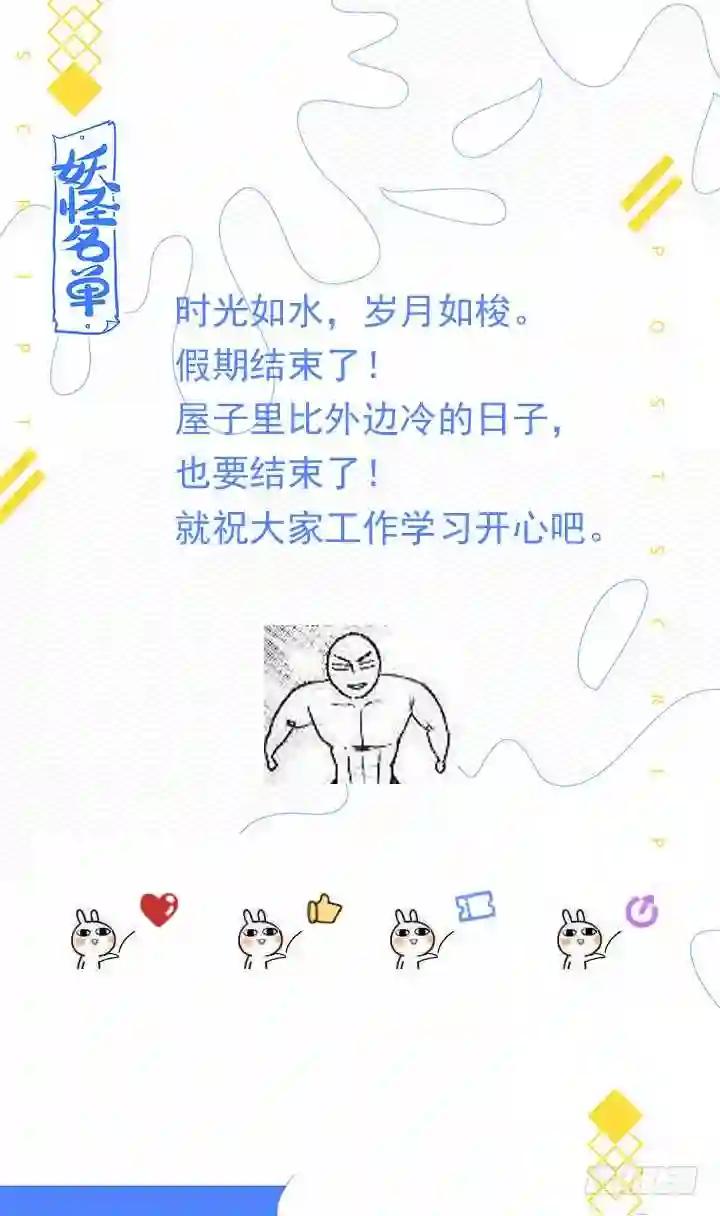 SCRIPT
妖怪名单
POSTSCRIP
时光如水，岁月如梭。
假期结束了！
屋子里比外边冷的日子，
也要结束了！
就祝大家工作学习开心吧。